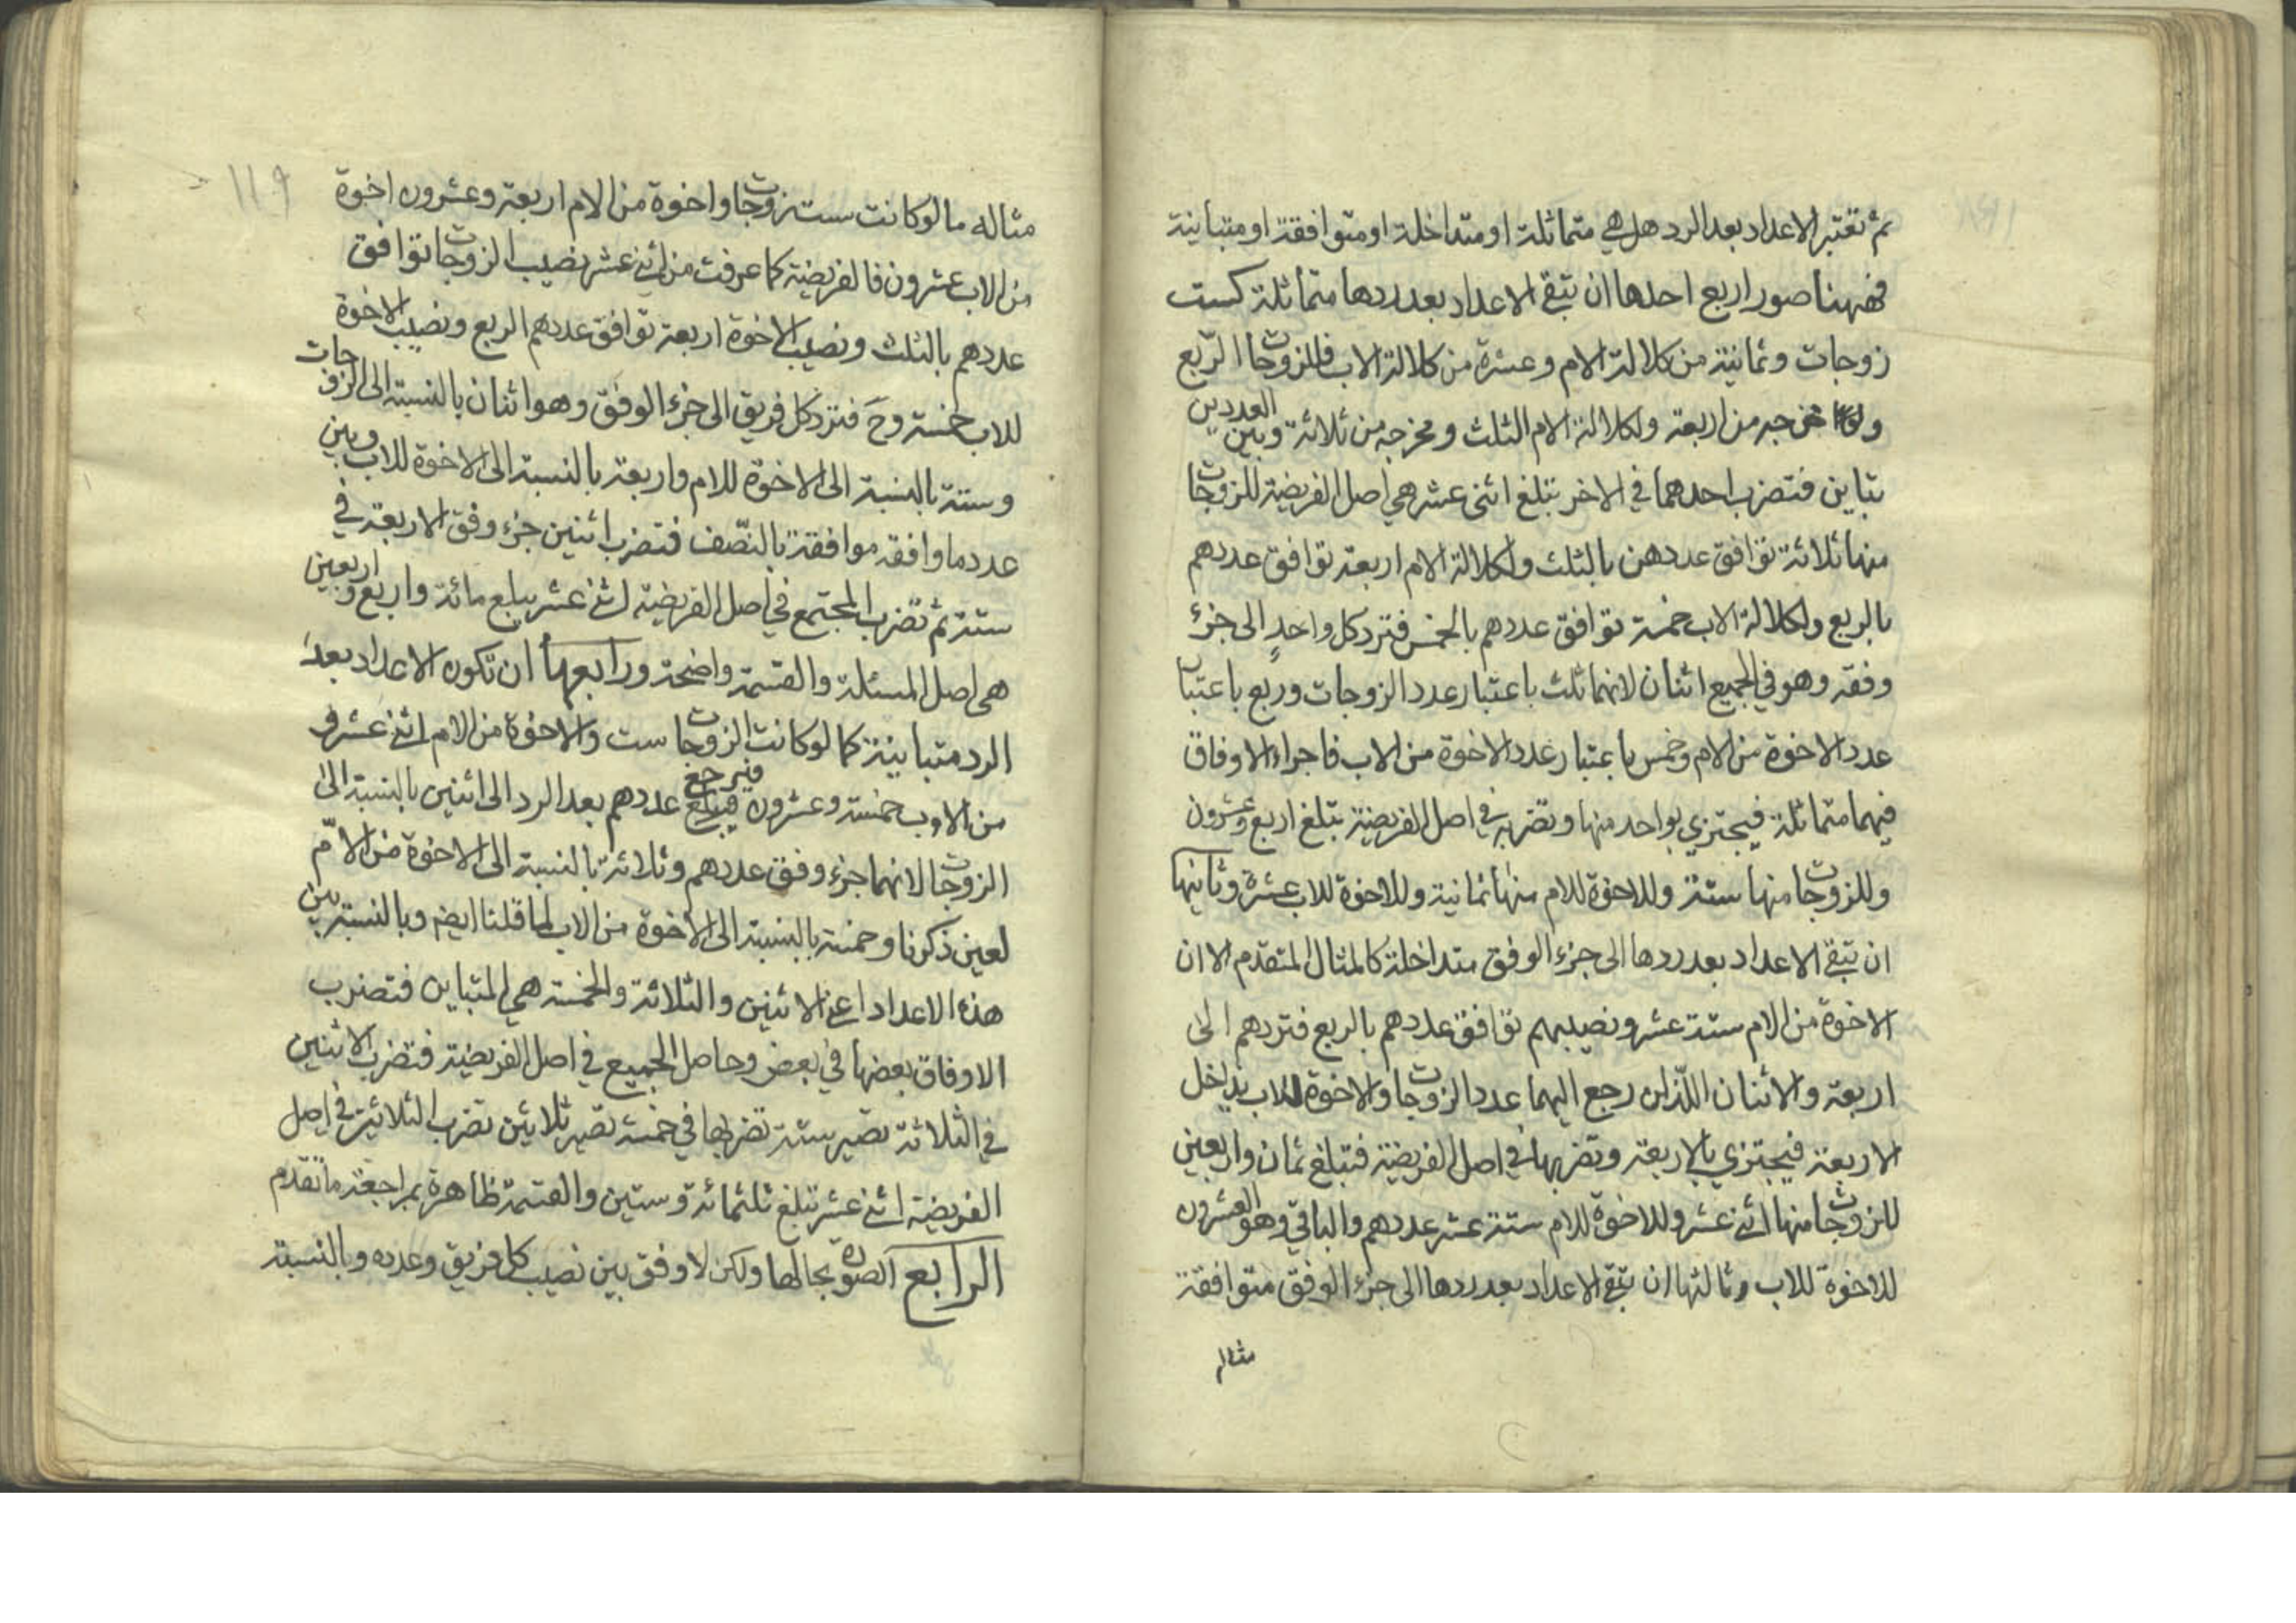 ثم تعتبر الاعداد بعد الرد هل هي متماثلة او متداخلة او متوافقة او متباينة
فههنا صور اربع احدها ان تبقى الاعداد بعد ردها متماثلة كست
زوجات وثمانية من كلالة الام وعشرة من كلالة الاب فللزوجات الربع
ومخرجه من اربعة ولكلالة الام الثلث ومخرجه من ثلاثة وبين العددين
تباين فتضرب احدهما في الاخر تبلغ اثنى عشر هي اصل الفريضة للزوجات
منها ثلاثة توافق عددهن بالثلث ولكلالة الام اربعة توافق عددهم
بالربع ولكلالة الاب خمسة توافق عددهم بالخمس فترد كل واحدٍ الى جزء
وفقه وهو في الجميع اثنان لانهما ثلث باعتبار عدد الزوجات وربع باعتبار
عدد الاخوة من الام وخمس باعتبار عدد الاخوة من الاب فاجزاء الاوفاق
فيهما متماثلة فيجتزي بواحد منها وتضربه في اصل الفريضة تبلغ اربع وعشرون
وللزوجات منها ستة وللاخوة للام منها ثمانية وللاخوة للاب عشرة وثانيها
ان تبقى الاعداد بعد ردها الى جزء الوفق متداخلة كالمثال المتقدم الا ان
الاخوة من الام ستة عشر ونصيبهم توافق عددهم بالربع فتردهم الى
اربعة والاثنان اللذان رجع اليهما عدد الزوجات والاخوة للاب يداخل
الاربعة فيجتزي بالاربعة وتضربها في اصل الفريضة فتبلغ ثمان واربعين
للزوجات منها اثنى عشر وللاخوة للام ستة عشر عددهم والباقي وهو العشرون
للاخوة للاب وثالثها ان تبقى الاعداد بعد ردها الى جزء الوفق متوافقة
مثاله
١١٩
مثاله ما لو كانت ست زوجات واخوة من الام اربعة وعشرون اخوة
من الاب عشرون فالفريضة كما عرفت من اثنى عشر نصيب الزوجات توافق
عددهم بالثلث ونصيب الاخوة اربعة توافق عددهم الربع ونصيب الاخوة
للاب خمسة وحَ فترد كل فريق الى جزء الوفق وهو اثنان بالنسبة الى الزوجات
وستة بالنسبة الى الاخوة للام واربعة بالنسبة الى الاخوة للاب وبين
عدد ما وافقه موافقة بالنّصف فتضرب اثنين جزء وفق الاربعة في
ستة ثم تضرب المجتمع في اصل الفريضة اثنى عشر يبلع مائة واربع واربعين
هى اصل المسئلة والقسمة واضحة ورابعها ان تكون الاعداد بعد
الرد متباينة كما لو كانت الزوجات ست والاخوة من الام اثنى عشر و
من الاب خمسة وعشرون فيرجع عددهم بعد الرد الى اثنين بالنسبة الى
الزوجات لانهما جزء وفق عددهم وثلاثة بالنسبة الى الاخوة من الامّ
لعين ذكرنا وخمسة بالنسبة الى الاخوة من الاب لما قلنا ايضم وبالنسبة بين
هذه الاعداد اعنى الاثنين والثلاثة والخمسة هي المتباين فتضرب
الاوفاق بعضها في بعض وحاصل الجميع في اصل الفريضة فتضرب الاثنين
في الثلاثة تصير ستة تضربها في خمسة تصير ثلاثين تضرب الثلاثين في اصل
الفريضة اثنى عشر تبلغ ثلثمائة وستين والقسمة ظاهرة بمراجعة ما تقدم
الرابع الصورة بحالها ولكن لا وفق بين نصيب كل فريق وعدده وبالنسبة